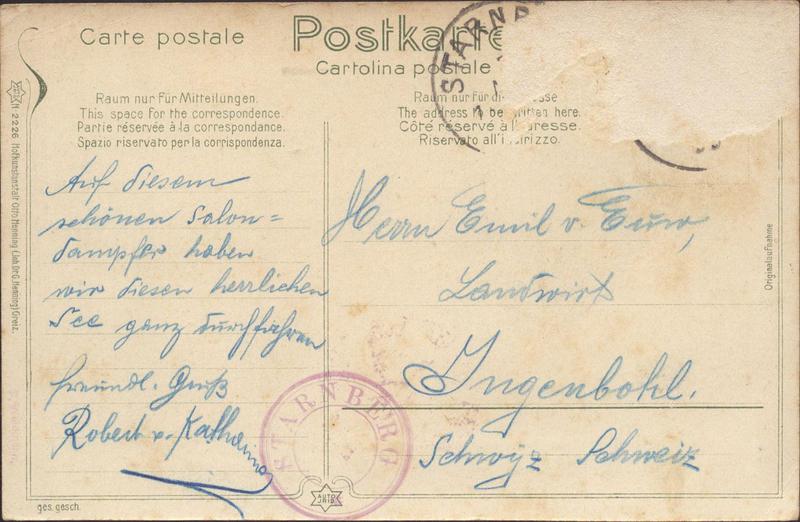 Carte postale
Postkarte
Cartolina postale
STARNB
Raum nur für Mitteilungen.
This space for the correspondence.
Partie réservée à la correspondance.
Spazio riservato per la corrispondenza.
Raum nur für die Adresse
The address to be written here.
Côté réservé à l'adresse.
Riservato all'indirizzo.
Auf diesem
schönen Salon=
dampfer haben
wir diesen herrlichen
See ganz durchfahren
freundl. Gruß
Robert v. Katharina
Herrn Emil v. Euw,
Landwirt
Ingenbohl.
Schwyz Schweiz
STARNBERG
N 2226. Hofkunstanstalt Otto Henning (Inh. Dr. G. Henning) Greiz.
Originalaufnahme
AUTO
ges. gesch.